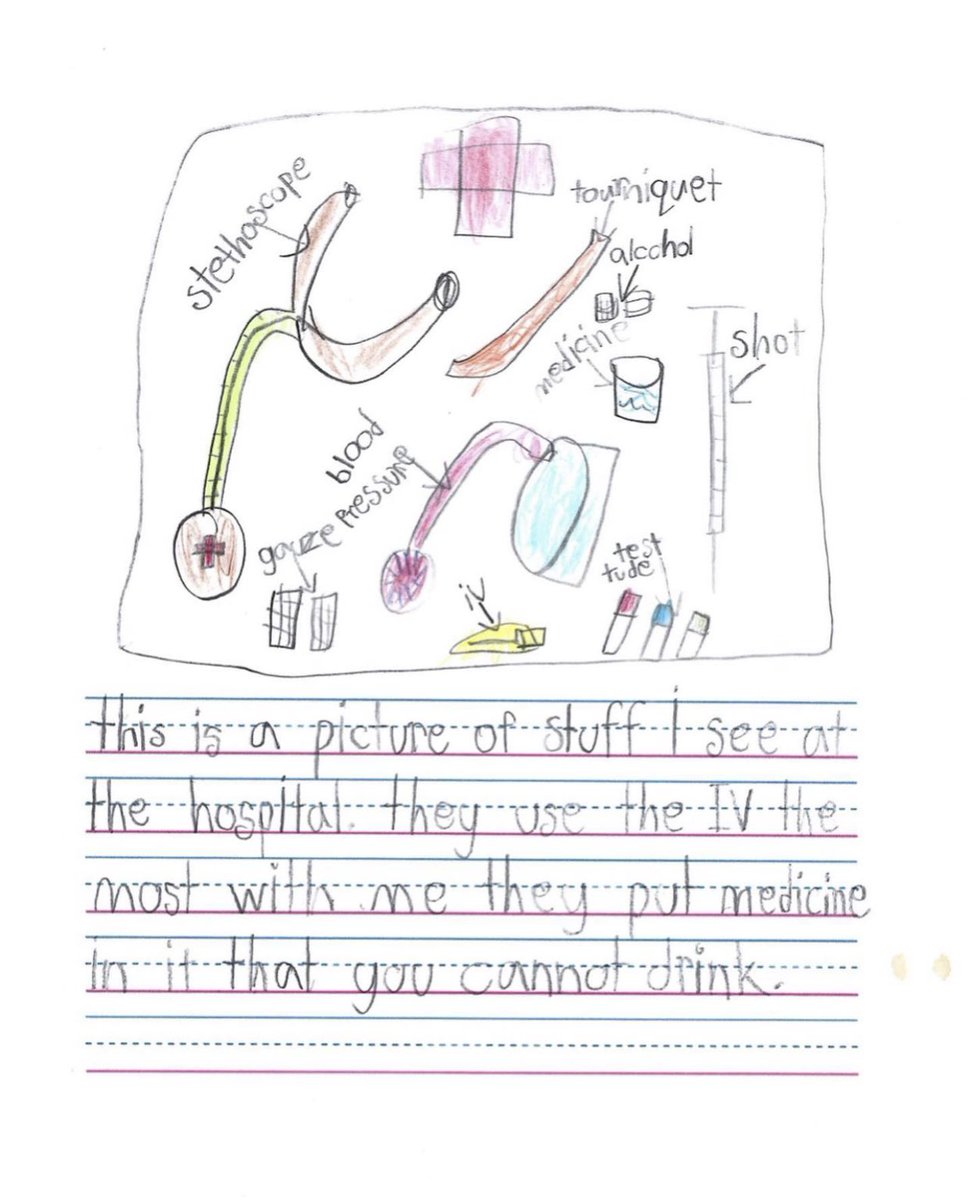 stethoscope
tourniquet
alcohol
medicine
shot
blood
pressure
gauze
iv
test
tude
this is a picture of stuff I see at
the hospital. they use the IV the
most with me they put medicine
in it that you cannot drink.